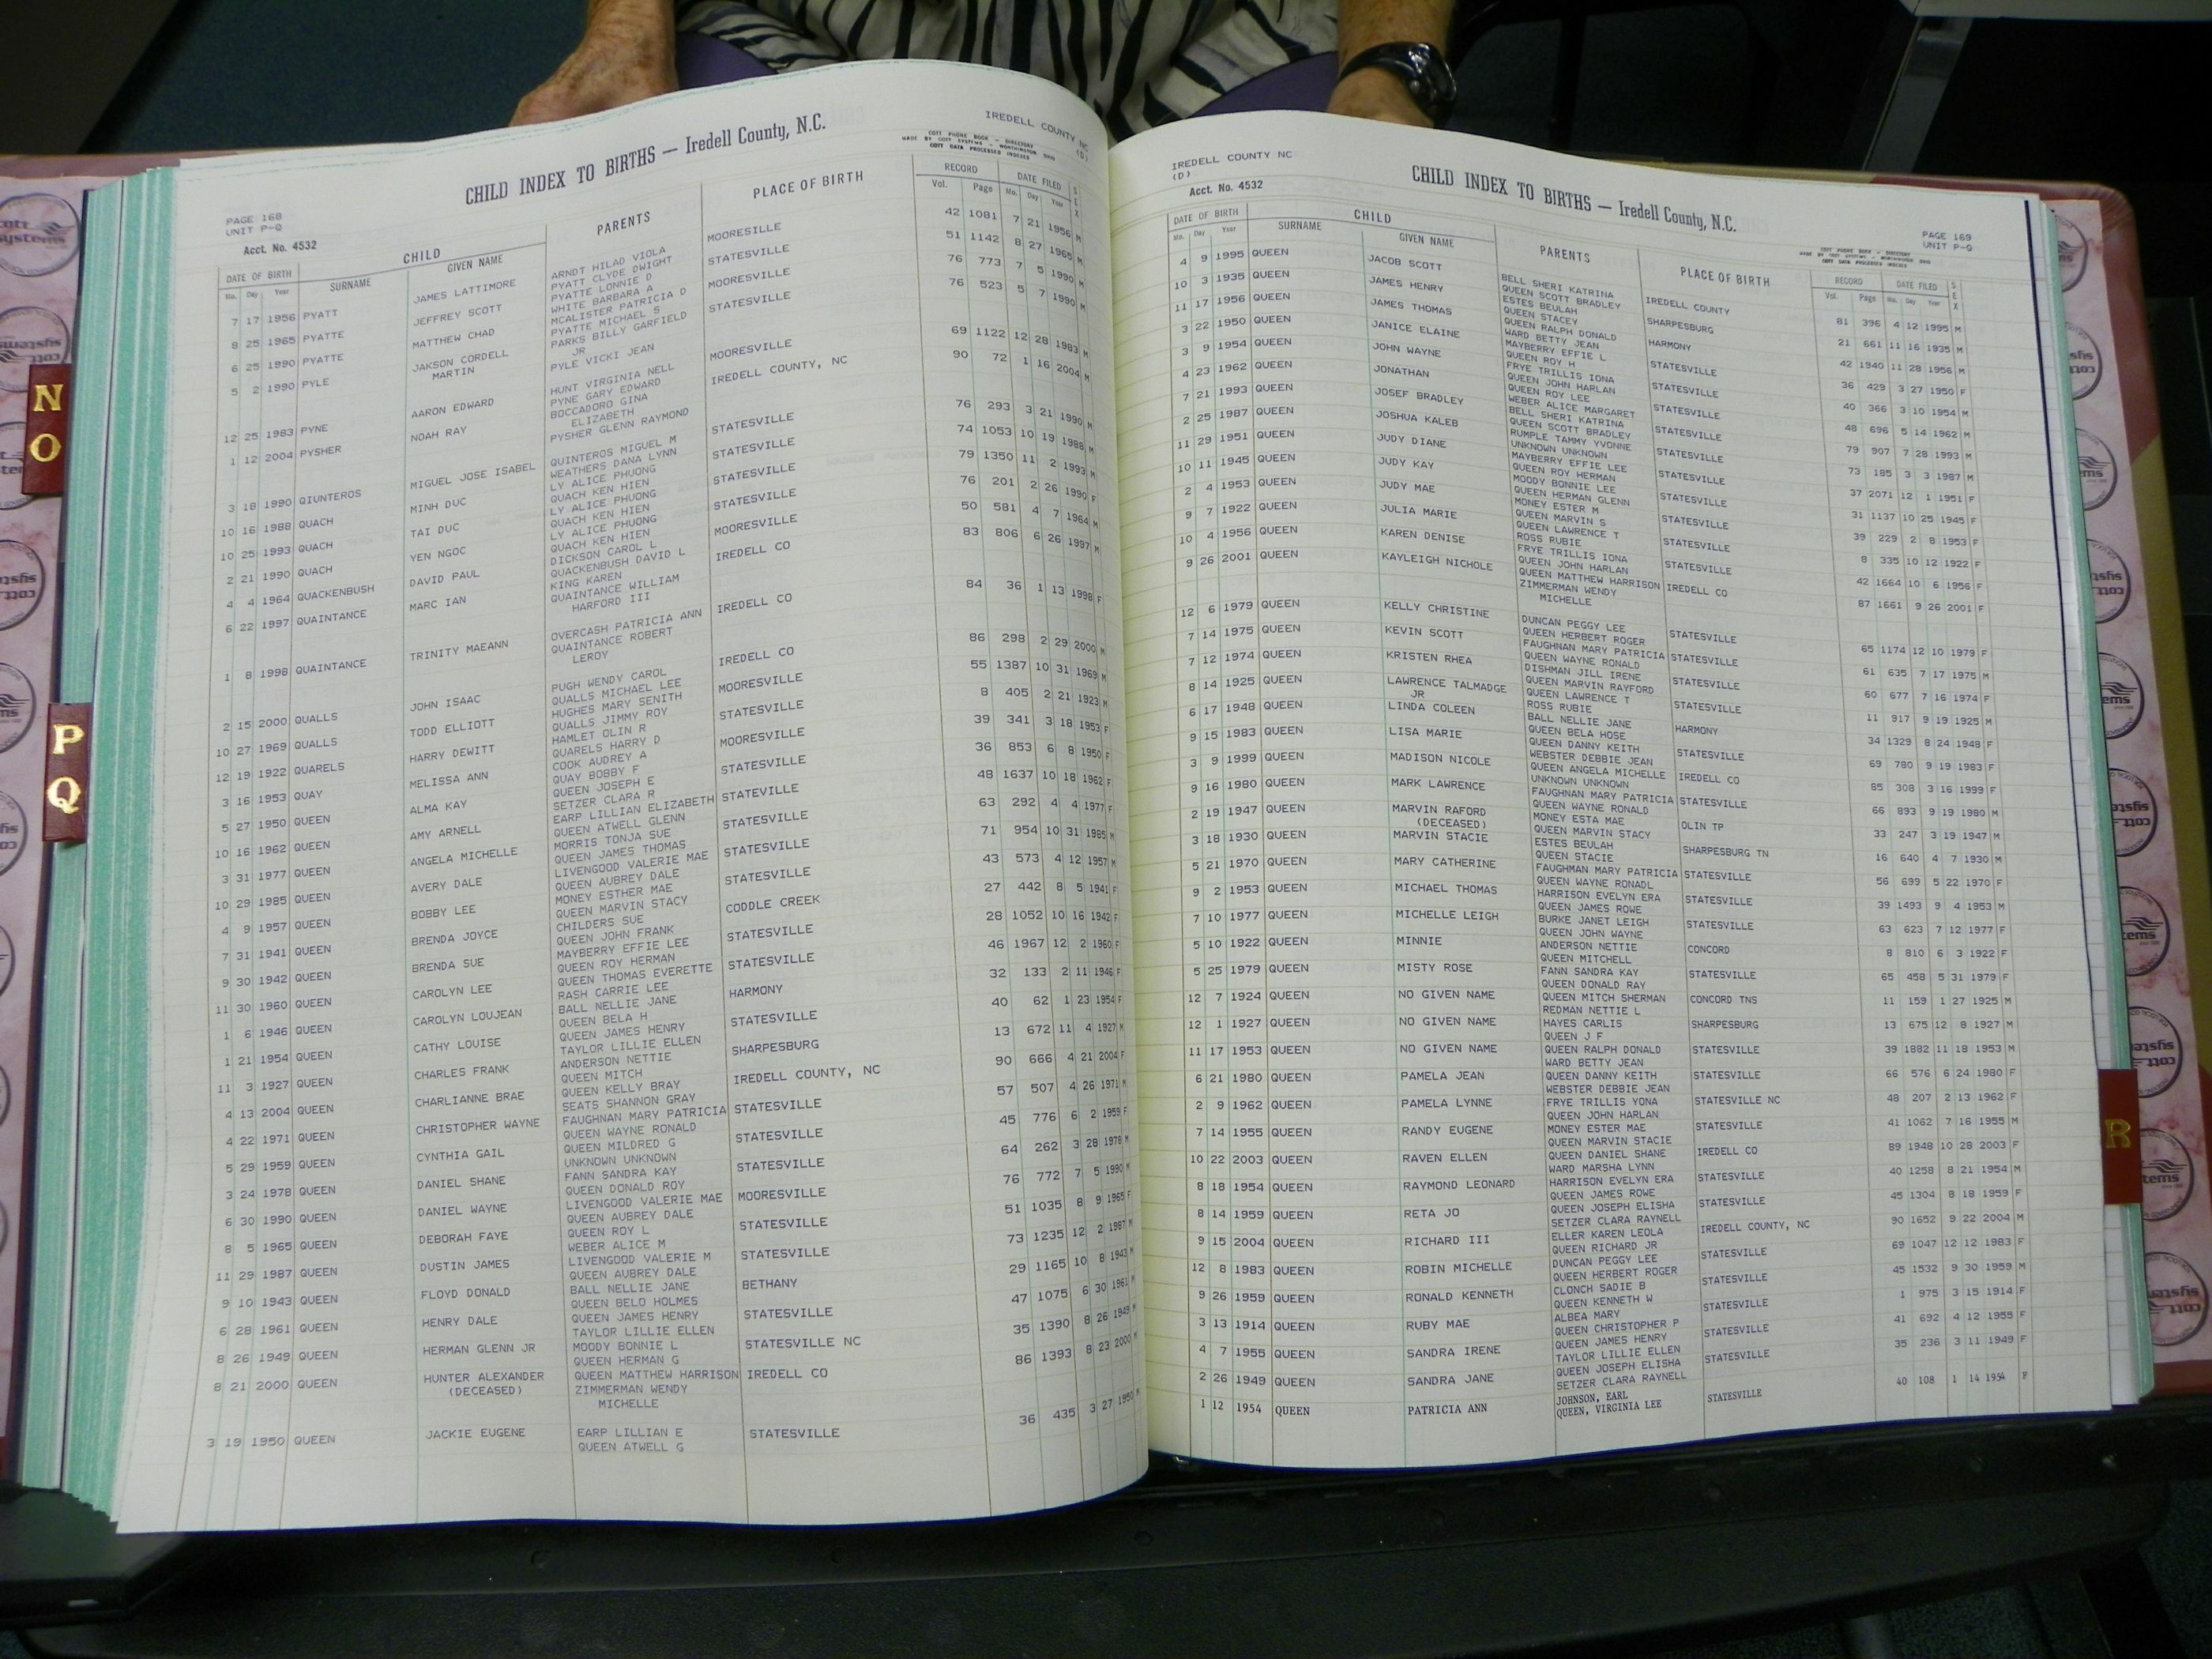 IREDELL COUNTY NC
(D)
CHILD INDEX TO BIRTHS — Iredell County, N.C.
COTT PHONE BOOK - DIRECTORY
MADE BY COTT SYSTEMS - WORTHINGTON OHIO
COTT DATA PROCESSED INDEXES
PAGE 168
UNIT P-Q
Acct. No. 4532
DATE OF BIRTH CHILD PARENTS PLACE OF BIRTH RECORD DATE FILED SEX
Mo. Day Year SURNAME GIVEN NAME Vol. Page Mo. Day Year
7 17 1956 PYATT JAMES LATTIMORE ARNDT HILAD VIOLA MOORESILLE 42 1081 7 21 1956 M
PYATT CLYDE DWIGHT
8 25 1965 PYATTE JEFFREY SCOTT PYATTE LONNIE D STATESVILLE 51 1142 8 27 1965 M
WHITE BARBARA A
6 25 1990 PYATTE MATTHEW CHAD MCALISTER PATRICIA D MOORESVILLE 76 773 7 5 1990 M
PYATTE MICHAEL S
5 2 1990 PYLE JAKSON CORDELL PARKS BILLY GARFIELD STATESVILLE 76 523 5 7 1990 M
MARTIN JR
PYLE VICKI JEAN
12 25 1983 PYNE AARON EDWARD HUNT VIRGINIA NELL MOORESVILLE 69 1122 12 28 1983 M
PYNE GARY EDWARD
1 12 2004 PYSHER NOAH RAY BOCCADORO GINA IREDELL COUNTY, NC 90 72 1 16 2004 M
ELIZABETH
PYSHER GLENN RAYMOND
3 18 1990 QIUNTEROS MIGUEL JOSE ISABEL QUINTEROS MIGUEL M STATESVILLE 76 293 3 21 1990 M
WEATHERS DANA LYNN
10 16 1988 QUACH MINH DUC LY ALICE PHUONG STATESVILLE 74 1053 10 19 1988 M
QUACH KEN HIEN
10 25 1993 QUACH TAI DUC LY ALICE PHUONG STATESVILLE 79 1350 11 2 1993 M
QUACH KEN HIEN
2 21 1990 QUACH YEN NGOC LY ALICE PHUONG STATESVILLE 76 201 2 26 1990 F
QUACH KEN HIEN
4 4 1964 QUACKENBUSH DAVID PAUL DICKSON CAROL L MOORESVILLE 50 581 4 7 1964 M
QUACKENBUSH DAVID L
6 22 1997 QUAINTANCE MARC IAN KING KAREN IREDELL CO 83 806 6 26 1997 M
QUAINTANCE WILLIAM
HARFORD III
1 8 1998 QUAINTANCE TRINITY MAEANN OVERCASH PATRICIA ANN IREDELL CO 84 36 1 13 1998 F
QUAINTANCE ROBERT
LEROY
2 15 2000 QUALLS JOHN ISAAC PUGH WENDY CAROL IREDELL CO 86 298 2 29 2000 M
QUALLS MICHAEL LEE
10 27 1969 QUALLS TODD ELLIOTT HUGHES MARY SENITH MOORESVILLE 55 1387 10 31 1969 M
QUALLS JIMMY ROY
12 19 1922 QUARELS HARRY DEWITT HAMLET OLIN R STATESVILLE 8 405 2 21 1923 M
QUARELS HARRY D
3 16 1953 QUAY MELISSA ANN COOK AUDREY A MOORESVILLE 39 341 3 18 1953 F
QUAY BOBBY F
5 27 1950 QUEEN ALMA KAY QUEEN JOSEPH E STATESVILLE 36 853 6 8 1950 F
SETZER CLARA R
10 16 1962 QUEEN AMY ARNELL EARP LILLIAN ELIZABETH STATEVILLE 48 1637 10 18 1962 F
QUEEN ATWELL GLENN
3 31 1977 QUEEN ANGELA MICHELLE MORRIS TONJA SUE STATESVILLE 63 292 4 4 1977 F
QUEEN JAMES THOMAS
10 29 1985 QUEEN AVERY DALE LIVENGOOD VALERIE MAE STATESVILLE 71 954 10 31 1985 M
QUEEN AUBREY DALE
4 9 1957 QUEEN BOBBY LEE MONEY ESTHER MAE STATESVILLE 43 573 4 12 1957 M
QUEEN MARVIN STACY
7 31 1941 QUEEN BRENDA JOYCE CHILDERS SUE CODDLE CREEK 27 442 8 5 1941 F
QUEEN JOHN FRANK
9 30 1942 QUEEN BRENDA SUE MAYBERRY EFFIE LEE STATESVILLE 28 1052 10 16 1942 F
QUEEN ROY HERMAN
11 30 1960 QUEEN CAROLYN LEE QUEEN THOMAS EVERETTE STATESVILLE 46 1967 12 2 1960 F
RASH CARRIE LEE
1 6 1946 QUEEN CAROLYN LOUJEAN BALL NELLIE JANE HARMONY 32 133 2 11 1946 F
QUEEN BELA H
1 21 1954 QUEEN CATHY LOUISE QUEEN JAMES HENRY STATESVILLE 40 62 1 23 1954 F
TAYLOR LILLIE ELLEN
11 3 1927 QUEEN CHARLES FRANK ANDERSON NETTIE SHARPESBURG 13 672 11 4 1927 M
QUEEN MITCH
4 13 2004 QUEEN CHARLIANNE BRAE QUEEN KELLY BRAY IREDELL COUNTY, NC 90 666 4 21 2004 F
SEATS SHANNON GRAY
4 22 1971 QUEEN CHRISTOPHER WAYNE FAUGHNAN MARY PATRICIA STATESVILLE 57 507 4 26 1971 M
QUEEN WAYNE RONALD
5 29 1959 QUEEN CYNTHIA GAIL QUEEN MILDRED G STATESVILLE 45 776 6 2 1959 F
UNKNOWN UNKNOWN
3 24 1978 QUEEN DANIEL SHANE FANN SANDRA KAY STATESVILLE 64 262 3 28 1978 M
QUEEN DONALD ROY
6 30 1990 QUEEN DANIEL WAYNE LIVENGOOD VALERIE MAE MOORESVILLE 76 772 7 5 1990 M
QUEEN AUBREY DALE
8 5 1965 QUEEN DEBORAH FAYE QUEEN ROY L STATESVILLE 51 1035 8 9 1965 F
WEBER ALICE M
11 29 1987 QUEEN DUSTIN JAMES LIVENGOOD VALERIE M STATESVILLE 73 1235 12 2 1987 M
QUEEN AUBREY DALE
9 10 1943 QUEEN FLOYD DONALD BALL NELLIE JANE BETHANY 29 1165 10 8 1943 M
QUEEN BELO HOLMES
6 28 1961 QUEEN HENRY DALE QUEEN JAMES HENRY STATESVILLE 47 1075 6 30 1961 M
TAYLOR LILLIE ELLEN
8 26 1949 QUEEN HERMAN GLENN JR MOODY BONNIE L STATESVILLE NC 35 1390 8 26 1949 M
QUEEN HERMAN G
8 21 2000 QUEEN HUNTER ALEXANDER QUEEN MATTHEW HARRISON IREDELL CO 86 1393 8 23 2000 M
(DECEASED) ZIMMERMAN WENDY
MICHELLE
3 19 1950 QUEEN JACKIE EUGENE EARP LILLIAN E STATESVILLE 36 435 3 27 1950 M
QUEEN ATWELL G
IREDELL COUNTY NC
(D)
Acct. No. 4532
CHILD INDEX TO BIRTHS — Iredell County, N.C.
PAGE 169
UNIT P-Q
COTT PHONE BOOK - DIRECTORY
MADE BY COTT SYSTEMS - WORTHINGTON OHIO
COTT DATA PROCESSED INDEXES
DATE OF BIRTH CHILD PARENTS PLACE OF BIRTH RECORD DATE FILED SEX
Mo. Day Year SURNAME GIVEN NAME Vol. Page Mo. Day Year
4 9 1995 QUEEN JACOB SCOTT BELL SHERI KATRINA IREDELL COUNTY 81 396 4 12 1995 M
QUEEN SCOTT BRADLEY
10 3 1935 QUEEN JAMES HENRY ESTES BEULAH SHARPESBURG 21 661 11 16 1935 M
QUEEN STACEY
11 17 1956 QUEEN JAMES THOMAS QUEEN RALPH DONALD HARMONY 42 1940 11 28 1956 M
WARD BETTY JEAN
3 22 1950 QUEEN JANICE ELAINE MAYBERRY EFFIE L STATESVILLE 36 429 3 27 1950 F
QUEEN ROY H
3 9 1954 QUEEN JOHN WAYNE FRYE TRILLIS IONA STATESVILLE 40 366 3 10 1954 M
QUEEN JOHN HARLAN
4 23 1962 QUEEN JONATHAN QUEEN ROY LEE STATESVILLE 48 696 5 14 1962 M
WEBER ALICE MARGARET
7 21 1993 QUEEN JOSEF BRADLEY BELL SHERI KATRINA STATESVILLE 79 907 7 28 1993 M
QUEEN SCOTT BRADLEY
2 25 1987 QUEEN JOSHUA KALEB RUMPLE TAMMY YVONNE STATESVILLE 73 185 3 3 1987 M
UNKNOWN UNKNOWN
11 29 1951 QUEEN JUDY DIANE MAYBERRY EFFIE LEE STATESVILLE 37 2071 12 1 1951 F
QUEEN ROY HERMAN
10 11 1945 QUEEN JUDY KAY MOODY BONNIE LEE STATESVILLE 31 1137 10 25 1945 F
QUEEN HERMAN GLENN
2 4 1953 QUEEN JUDY MAE MONEY ESTER M STATESVILLE 39 229 2 8 1953 F
QUEEN MARVIN S
9 7 1922 QUEEN JULIA MARIE QUEEN LAWRENCE T STATESVILLE 8 335 10 12 1922 F
ROSS RUBIE
10 4 1956 QUEEN KAREN DENISE FRYE TRILLIS IONA STATESVILLE 42 1664 10 6 1956 F
QUEEN JOHN HARLAN
9 26 2001 QUEEN KAYLEIGH NICHOLE QUEEN MATTHEW HARRISON IREDELL CO 87 1661 9 26 2001 F
ZIMMERMAN WENDY
MICHELLE
12 6 1979 QUEEN KELLY CHRISTINE DUNCAN PEGGY LEE STATESVILLE 65 1174 12 10 1979 F
QUEEN HERBERT ROGER
7 14 1975 QUEEN KEVIN SCOTT FAUGHNAN MARY PATRICIA STATESVILLE 61 635 7 17 1975 M
QUEEN WAYNE RONALD
7 12 1974 QUEEN KRISTEN RHEA DISHMAN JILL IRENE STATESVILLE 60 677 7 16 1974 F
QUEEN MARVIN RAYFORD
8 14 1925 QUEEN LAWRENCE TALMADGE QUEEN LAWRENCE T STATESVILLE 11 917 9 19 1925 M
JR ROSS RUBIE
6 17 1948 QUEEN LINDA COLEEN BALL NELLIE JANE HARMONY 34 1329 8 24 1948 F
QUEEN BELA HOSE
9 15 1983 QUEEN LISA MARIE QUEEN DANNY KEITH STATESVILLE 69 780 9 19 1983 F
WEBSTER DEBBIE JEAN
3 9 1999 QUEEN MADISON NICOLE QUEEN ANGELA MICHELLE IREDELL CO 85 308 3 16 1999 F
UNKNOWN UNKNOWN
9 16 1980 QUEEN MARK LAWRENCE FAUGHNAN MARY PATRICIA STATESVILLE 66 893 9 19 1980 M
QUEEN WAYNE RONALD
2 19 1947 QUEEN MARVIN RAFORD MONEY ESTA MAE OLIN TP 33 247 3 19 1947 M
(DECEASED) QUEEN MARVIN STACY
3 18 1930 QUEEN MARVIN STACIE ESTES BEULAH SHARPESBURG TN 16 640 4 7 1930 M
QUEEN STACIE
5 21 1970 QUEEN MARY CATHERINE FAUGHMAN MARY PATRICIA STATESVILLE 56 699 5 22 1970 F
QUEEN WAYNE RONADL
9 2 1953 QUEEN MICHAEL THOMAS HARRISON EVELYN ERA STATESVILLE 39 1493 9 4 1953 M
QUEEN JAMES ROWE
7 10 1977 QUEEN MICHELLE LEIGH BURKE JANET LEIGH STATESVILLE 63 623 7 12 1977 F
QUEEN JOHN WAYNE
5 10 1922 QUEEN MINNIE ANDERSON NETTIE CONCORD 8 810 6 3 1922 F
QUEEN MITCHELL
5 25 1979 QUEEN MISTY ROSE FANN SANDRA KAY STATESVILLE 65 458 5 31 1979 F
QUEEN DONALD RAY
12 7 1924 QUEEN NO GIVEN NAME QUEEN MITCH SHERMAN CONCORD TNS 11 159 1 27 1925 M
REDMAN NETTIE L
12 1 1927 QUEEN NO GIVEN NAME HAYES CARLIS SHARPESBURG 13 675 12 8 1927 M
QUEEN J F
11 17 1953 QUEEN NO GIVEN NAME QUEEN RALPH DONALD STATESVILLE 39 1882 11 18 1953 M
WARD BETTY JEAN
6 21 1980 QUEEN PAMELA JEAN QUEEN DANNY KEITH STATESVILLE 66 576 6 24 1980 F
WEBSTER DEBBIE JEAN
2 9 1962 QUEEN PAMELA LYNNE FRYE TRILLIS YONA STATESVILLE NC 48 207 2 13 1962 F
QUEEN JOHN HARLAN
7 14 1955 QUEEN RANDY EUGENE MONEY ESTER MAE STATESVILLE 41 1062 7 16 1955 M
QUEEN MARVIN STACIE
10 22 2003 QUEEN RAVEN ELLEN QUEEN DANIEL SHANE IREDELL CO 89 1948 10 28 2003 F
WARD MARSHA LYNN
8 18 1954 QUEEN RAYMOND LEONARD HARRISON EVELYN ERA STATESVILLE 40 1258 8 21 1954 M
QUEEN JAMES ROWE
8 14 1959 QUEEN RETA JO QUEEN JOSEPH ELISHA STATESVILLE 45 1304 8 18 1959 F
SETZER CLARA RAYNELL
9 15 2004 QUEEN RICHARD III ELLER KAREN LEOLA IREDELL COUNTY, NC 90 1652 9 22 2004 M
QUEEN RICHARD JR
12 8 1983 QUEEN ROBIN MICHELLE DUNCAN PEGGY LEE STATESVILLE 69 1047 12 12 1983 F
QUEEN HERBERT ROGER
9 26 1959 QUEEN RONALD KENNETH CLONCH SADIE B STATESVILLE 45 1532 9 30 1959 M
QUEEN KENNETH W
3 13 1914 QUEEN RUBY MAE ALBEA MARY STATESVILLE 1 975 3 15 1914 F
QUEEN CHRISTOPHER P
4 7 1955 QUEEN SANDRA IRENE QUEEN JAMES HENRY STATESVILLE 41 692 4 12 1955 F
TAYLOR LILLIE ELLEN
2 26 1949 QUEEN SANDRA JANE QUEEN JOSEPH ELISHA STATESVILLE 35 236 3 11 1949 F
SETZER CLARA RAYNELL
1 12 1954 QUEEN PATRICIA ANN JOHNSON, EARL STATESVILLE 40 108 1 14 1954 F
QUEEN, VIRGINIA LEE
N
O
P
Q
R
cott
systems